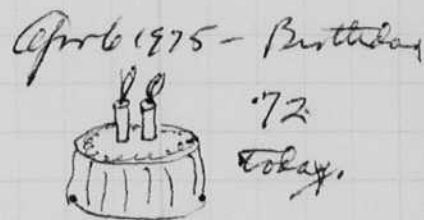 Apr 6 1975 - Birthday
72
today.